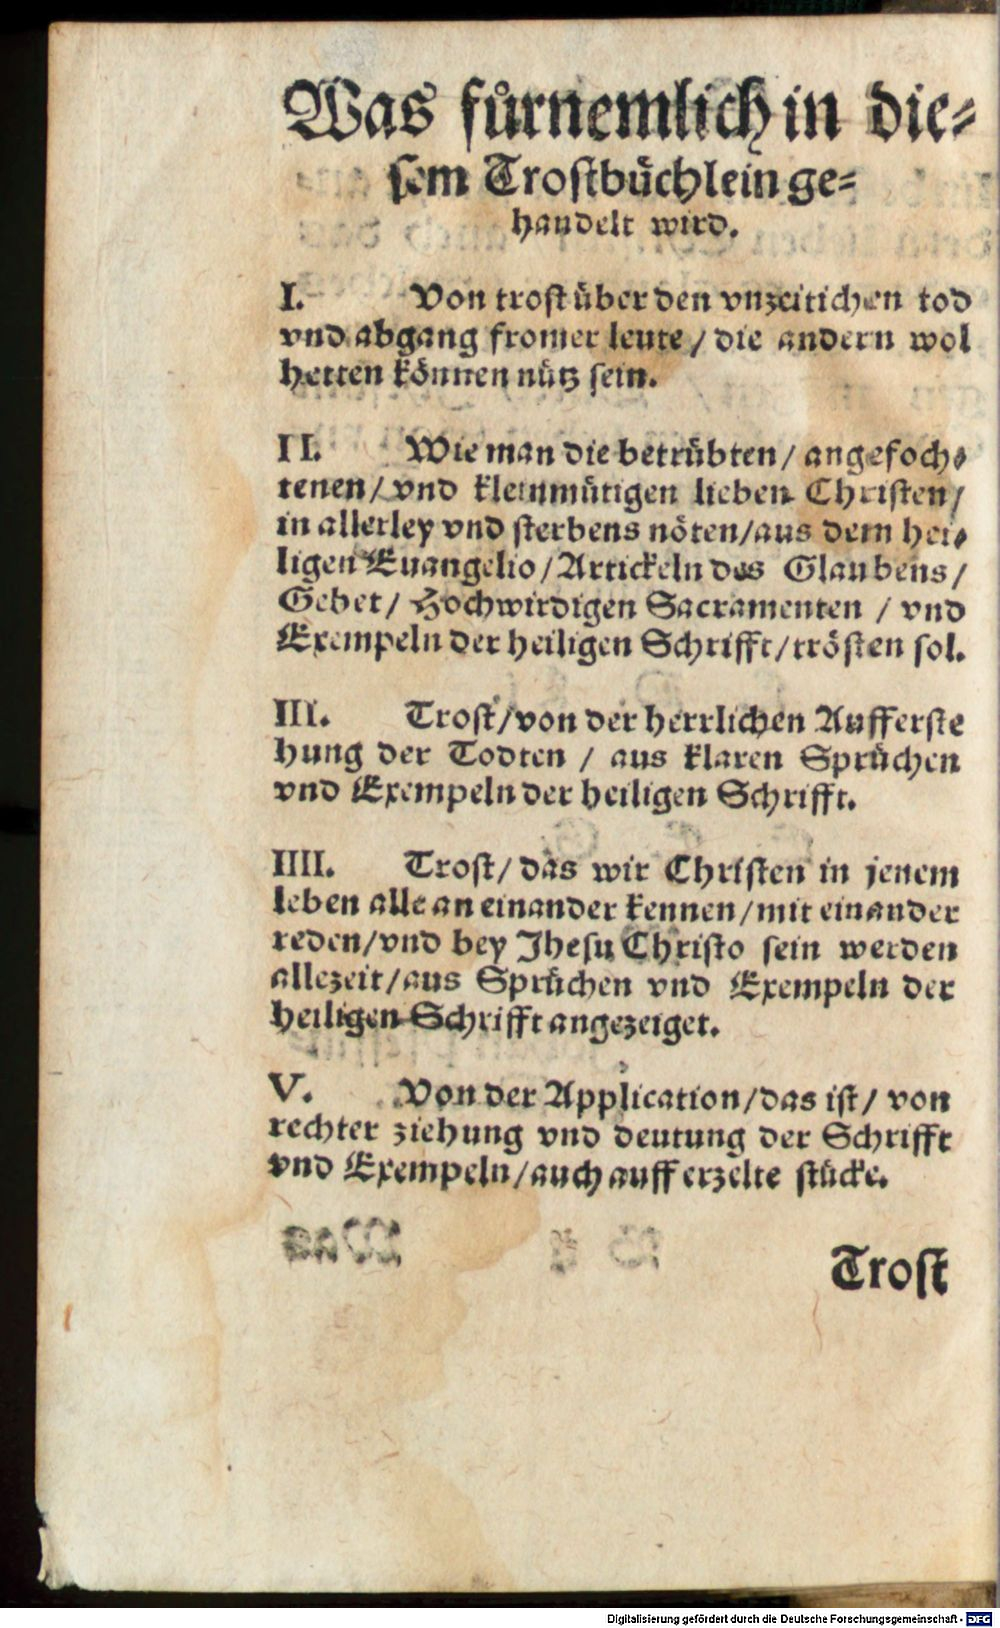 Was fürnemlich in die⸗
sem Trostbüchlein ge⸗
handelt wird.
I. Von trost über den vnzeitichen tod
vnd abgang fromer leute / die andern wol
hetten können nütz sein.
II. Wie man die betrübten / angefoch⸗
tenen / vnd kleinmütigen lieben Christen /
in allerley vnd sterbens nöten / aus dem hei⸗
ligen Euangelio / Artickeln des Glaubens /
Gebet / Hochwirdigen Sacramenten / vnd
Exempeln der heiligen Schrifft / trösten sol.
III. Trost / von der herrlichen Aufferste
hung der Todten / aus klaren Sprüchen
vnd Exempeln der heiligen Schrifft.
IIII. Trost / das wir Christen in jenem
leben alle an einander kennen / mit einander
reden / vnd bey Jhesu Christo sein werden
allezeit / aus Sprüchen vnd Exempeln der
heiligen Schrifft angezeiget.
V. Von der Application / das ist / von
rechter ziehung vnd deutung der Schrifft
vnd Exempeln / auch auff erzelte stücke.
Trost
Digitalisierung gefördert durch die Deutsche Forschungsgemeinschaft - DFG